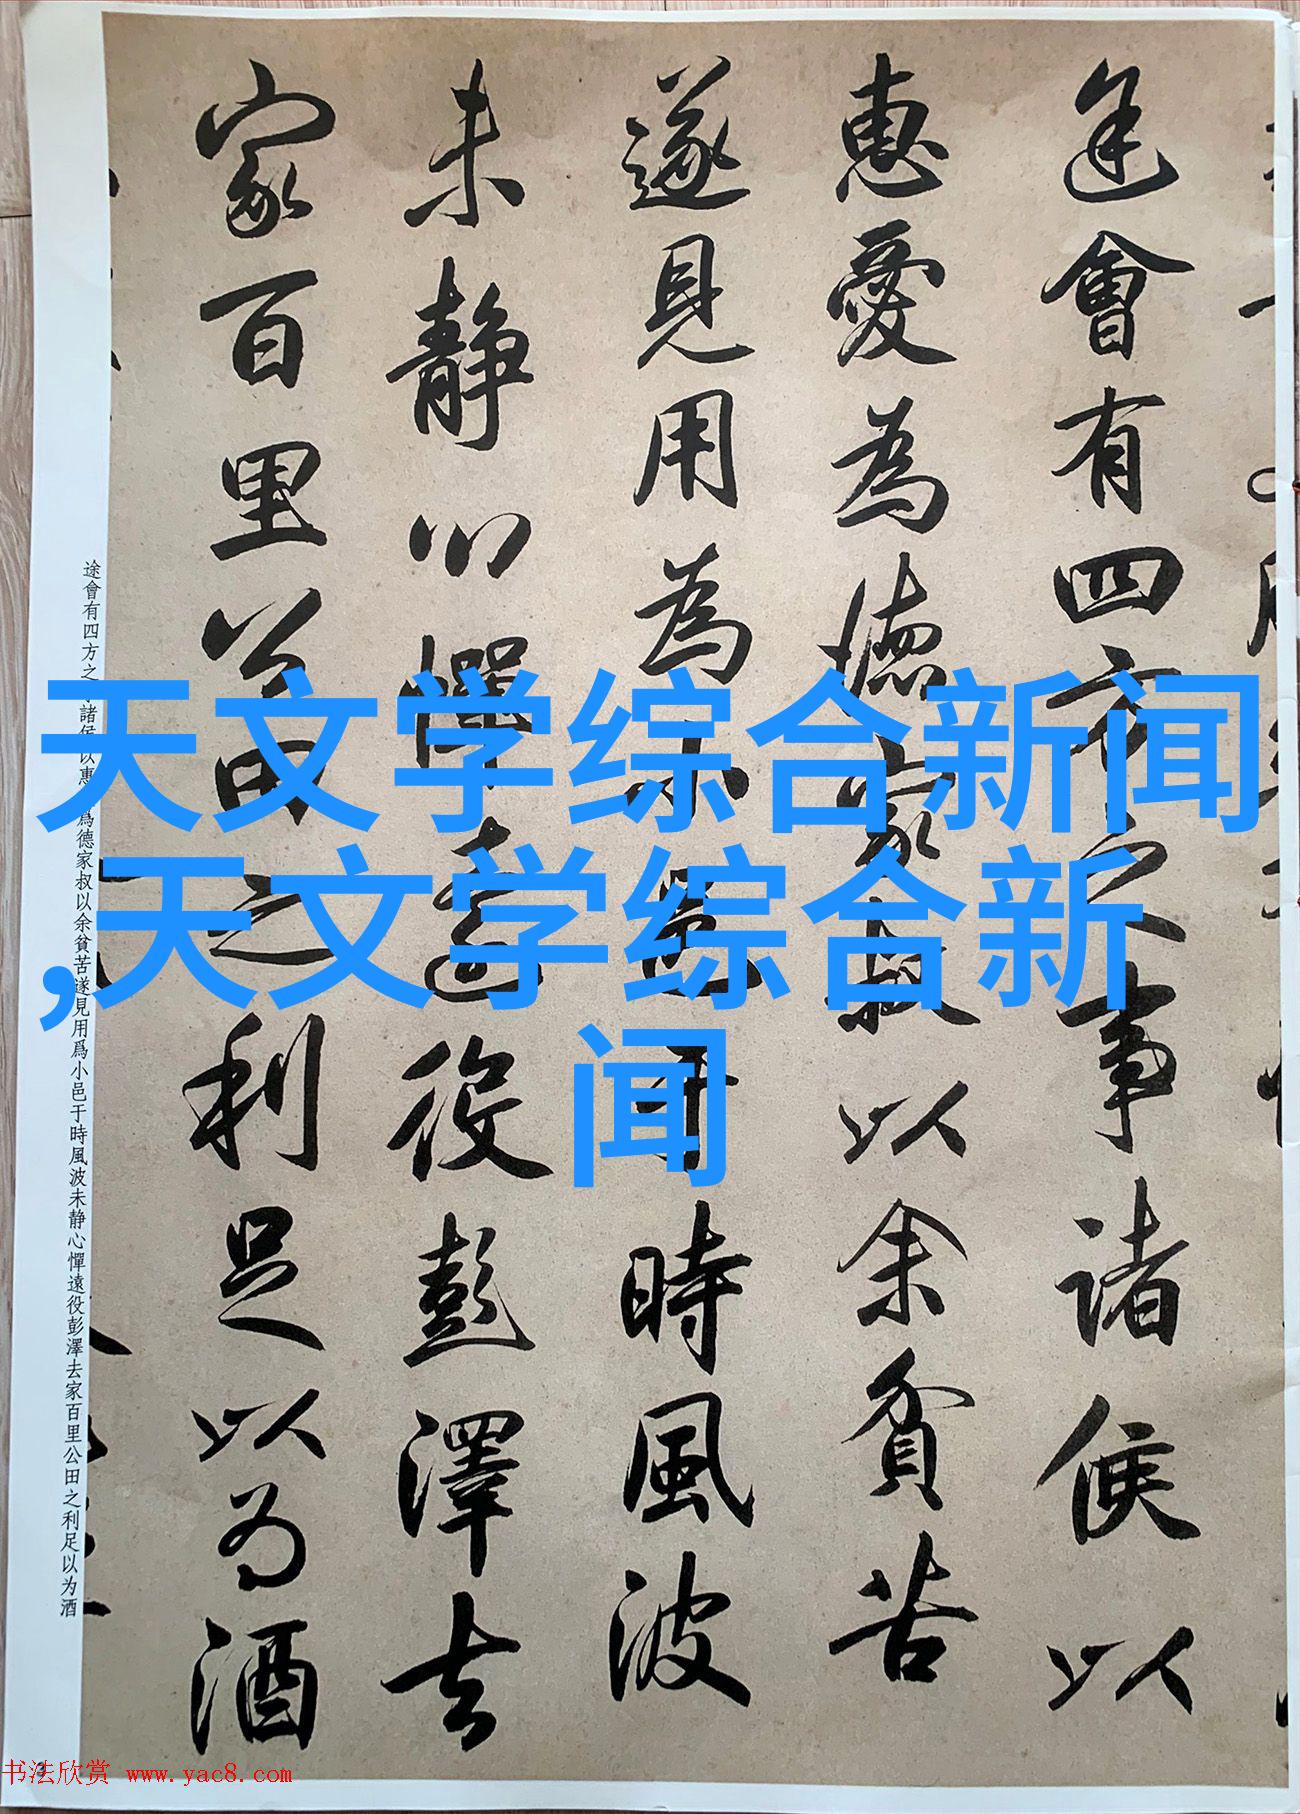 天文学综合新闻
,天文学综合新
闻
途會有四方之事諸侯以
惠愛為德家叔以余貧苦
遂見用為小邑于時風波
未靜心憚遠役彭澤去
家百里公田之利足以為酒
途會有四方之 諸侯以惠 爲德家叔以余貧苦遂見用爲小邑于時風波未静心憚遠役彭澤去家百里公田之利足以为酒
书法欣赏 www.yac8.com